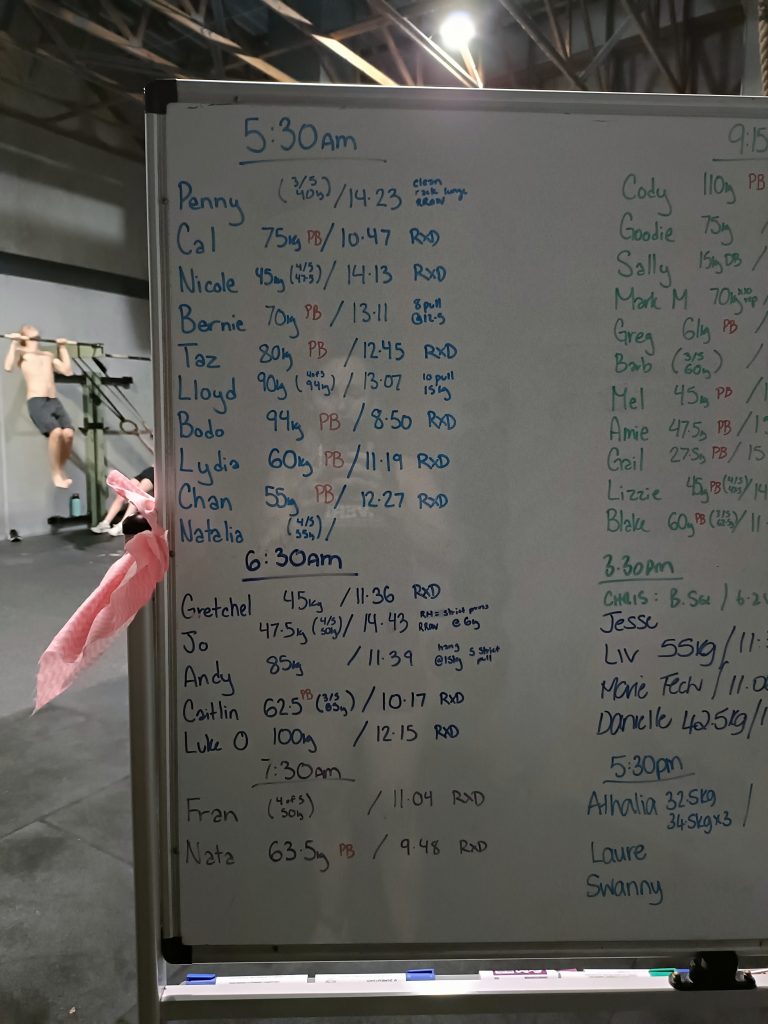 5:30am
Penny (3/5 40kg) / 14.23 clean rack lunge RROW
Cal 75kg PB / 10.47 RXD
Nicole 45kg (4/5 47.5) / 14.13 RXD
Bernie 70kg PB / 13.11 8 pull @12.5
Taz 80kg PB / 12.45 RXD
Lloyd 90kg (4of5 94kg) / 13.07 10 pull 15kg
Bodo 94kg PB / 8.50 RXD
Lydia 60kg PB / 11.19 RXD
Chan 55kg PB / 12.27 RXD
Natalia (4/5 55kg) /
6:30am
Gretchel 45kg / 11.36 RXD
Jo 47.5kg (4/5 50kg) / 14.43 RH= strict press RROW @ 6kg
Andy 85kg / 11.39 hang @15kg 5 strict pull
Caitlin 62.5 PB (3/5 65kg) / 10.17 RXD
Luke O 100kg / 12.15 RXD
7:30am
Fran (4of5 50kg) / 11.04 RXD
Nata 63.5kg PB / 9.48 RXD
9:15
Cody 110kg PB
Goodie 75kg /
Sally 15kg DB /
Mark M 70kg /
Greg 61kg PB /
Barb (3/5 60kg) /
Mel 45kg PB / 1
Amie 47.5kg PB / 13
Gail 27.5kg PB / 15
Lizzie 45kg PB (4/5) / 14
Blake 60kg PB (3/5 62.5) / 11.
3.30pm
CHRIS: B.SQU / 6.2
Jesse
Liv 55kg / 11.
Marie Tech / 11.0
Danielle 42.5kg / 1
5:30pm
Athalia 32.5kg /
34.5kg x3
Laure
Swanny